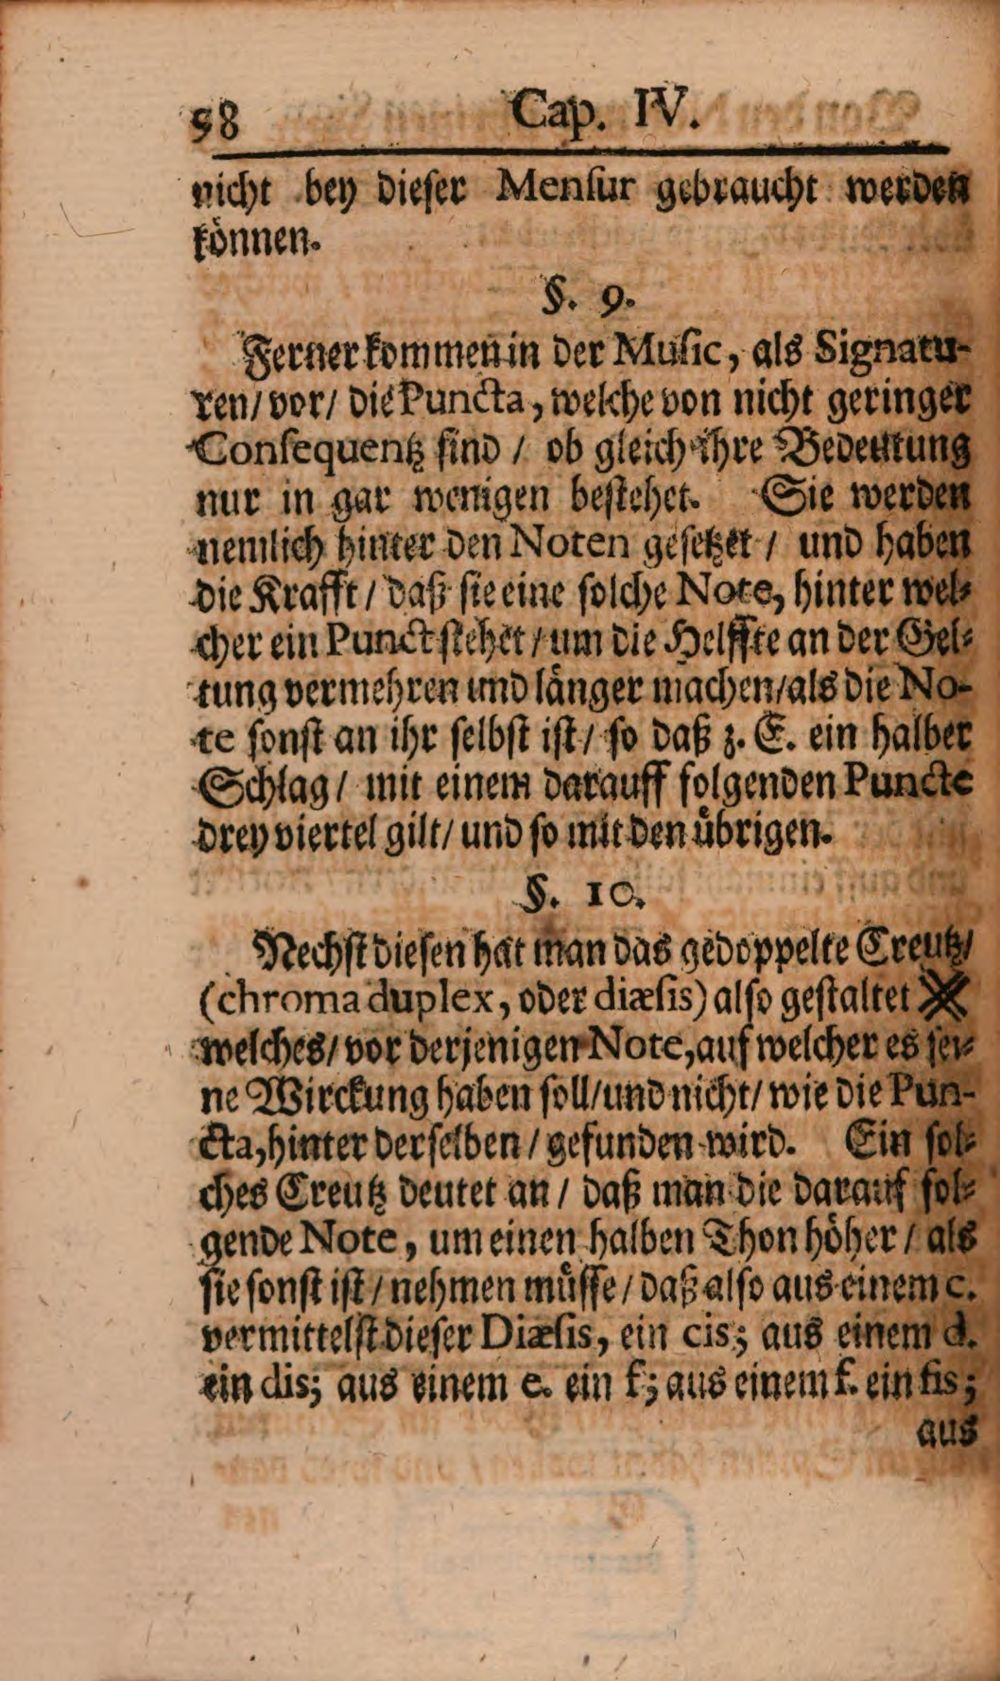 98 Cap. IV.
nicht bey dieſer Menſur gebraucht werden
können.
§. 9.
Ferner kommen in der Muſic, als Signatu-
ren/ vor/ die Puncta, welche von nicht geringer
Conſequentz ſind / ob gleich ihre Bedeutung
nur in gar wenigen beſtehet. Sie werden
nemlich hinter den Noten geſetzet / und haben
die Krafft / daß ſie eine ſolche Note, hinter wel-
cher ein Punct ſtehet / um die Helffte an der Gel-
tung vermehren und länger machen/als die No-
te ſonſt an ihr ſelbſt iſt/ ſo daß z. E. ein halber
Schlag/ mit einem darauff folgenden Puncte
drey viertel gilt/ und ſo mit den übrigen.
§. 10.
Nechſt dieſen hat man das gedoppelte Creutz/
(chroma duplex, oder diæſis) alſo geſtaltet
welches/ vor derjenigen Note, auf welcher es ſei-
ne Wirckung haben ſoll/und nicht/ wie die Pun-
cta, hinter derſelben / gefunden wird. Ein ſol-
ches Creutz deutet an / daß man die darauf fol-
gende Note, um einen halben Thon höher / als
ſie ſonſt iſt / nehmen müſſe / daß alſo aus einem c.
vermittelſt dieſer Diæſis, ein cis; aus einem d.
ein dis; aus einem e. ein f; aus einem f. ein fis;
aus